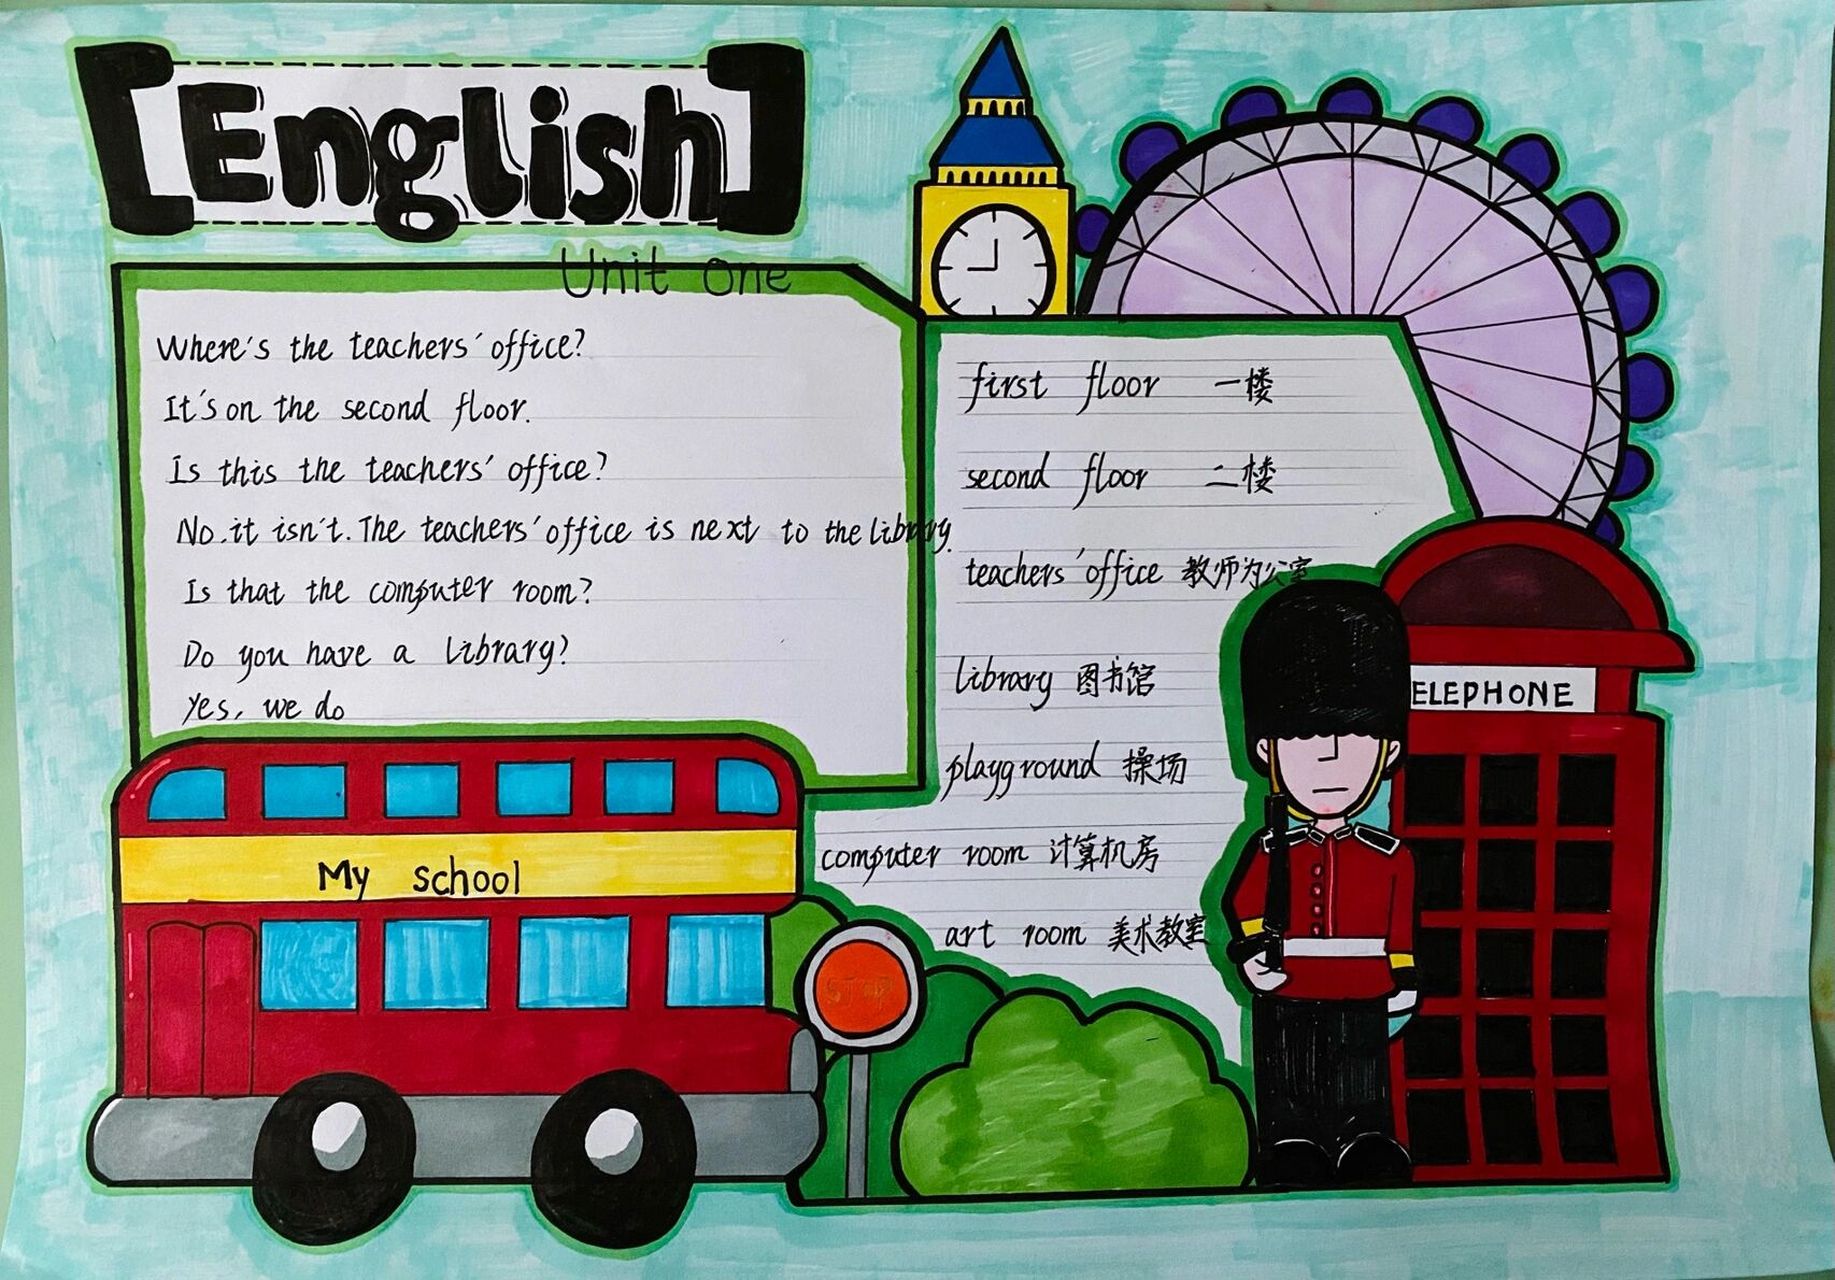 [English]
Unit one
Where's the teachers' office?
It's on the second floor.
Is this the teachers' office?
No.it isn't. The teachers' office is next to the library.
Is that the computer room?
Do you have a library?
Yes, we do
first floor 一楼
second floor 二楼
teachers' office 教师办公室
library 图书馆
playground 操场
computer room 计算机房
art room 美术教室
ELEPHONE
My school
STOP